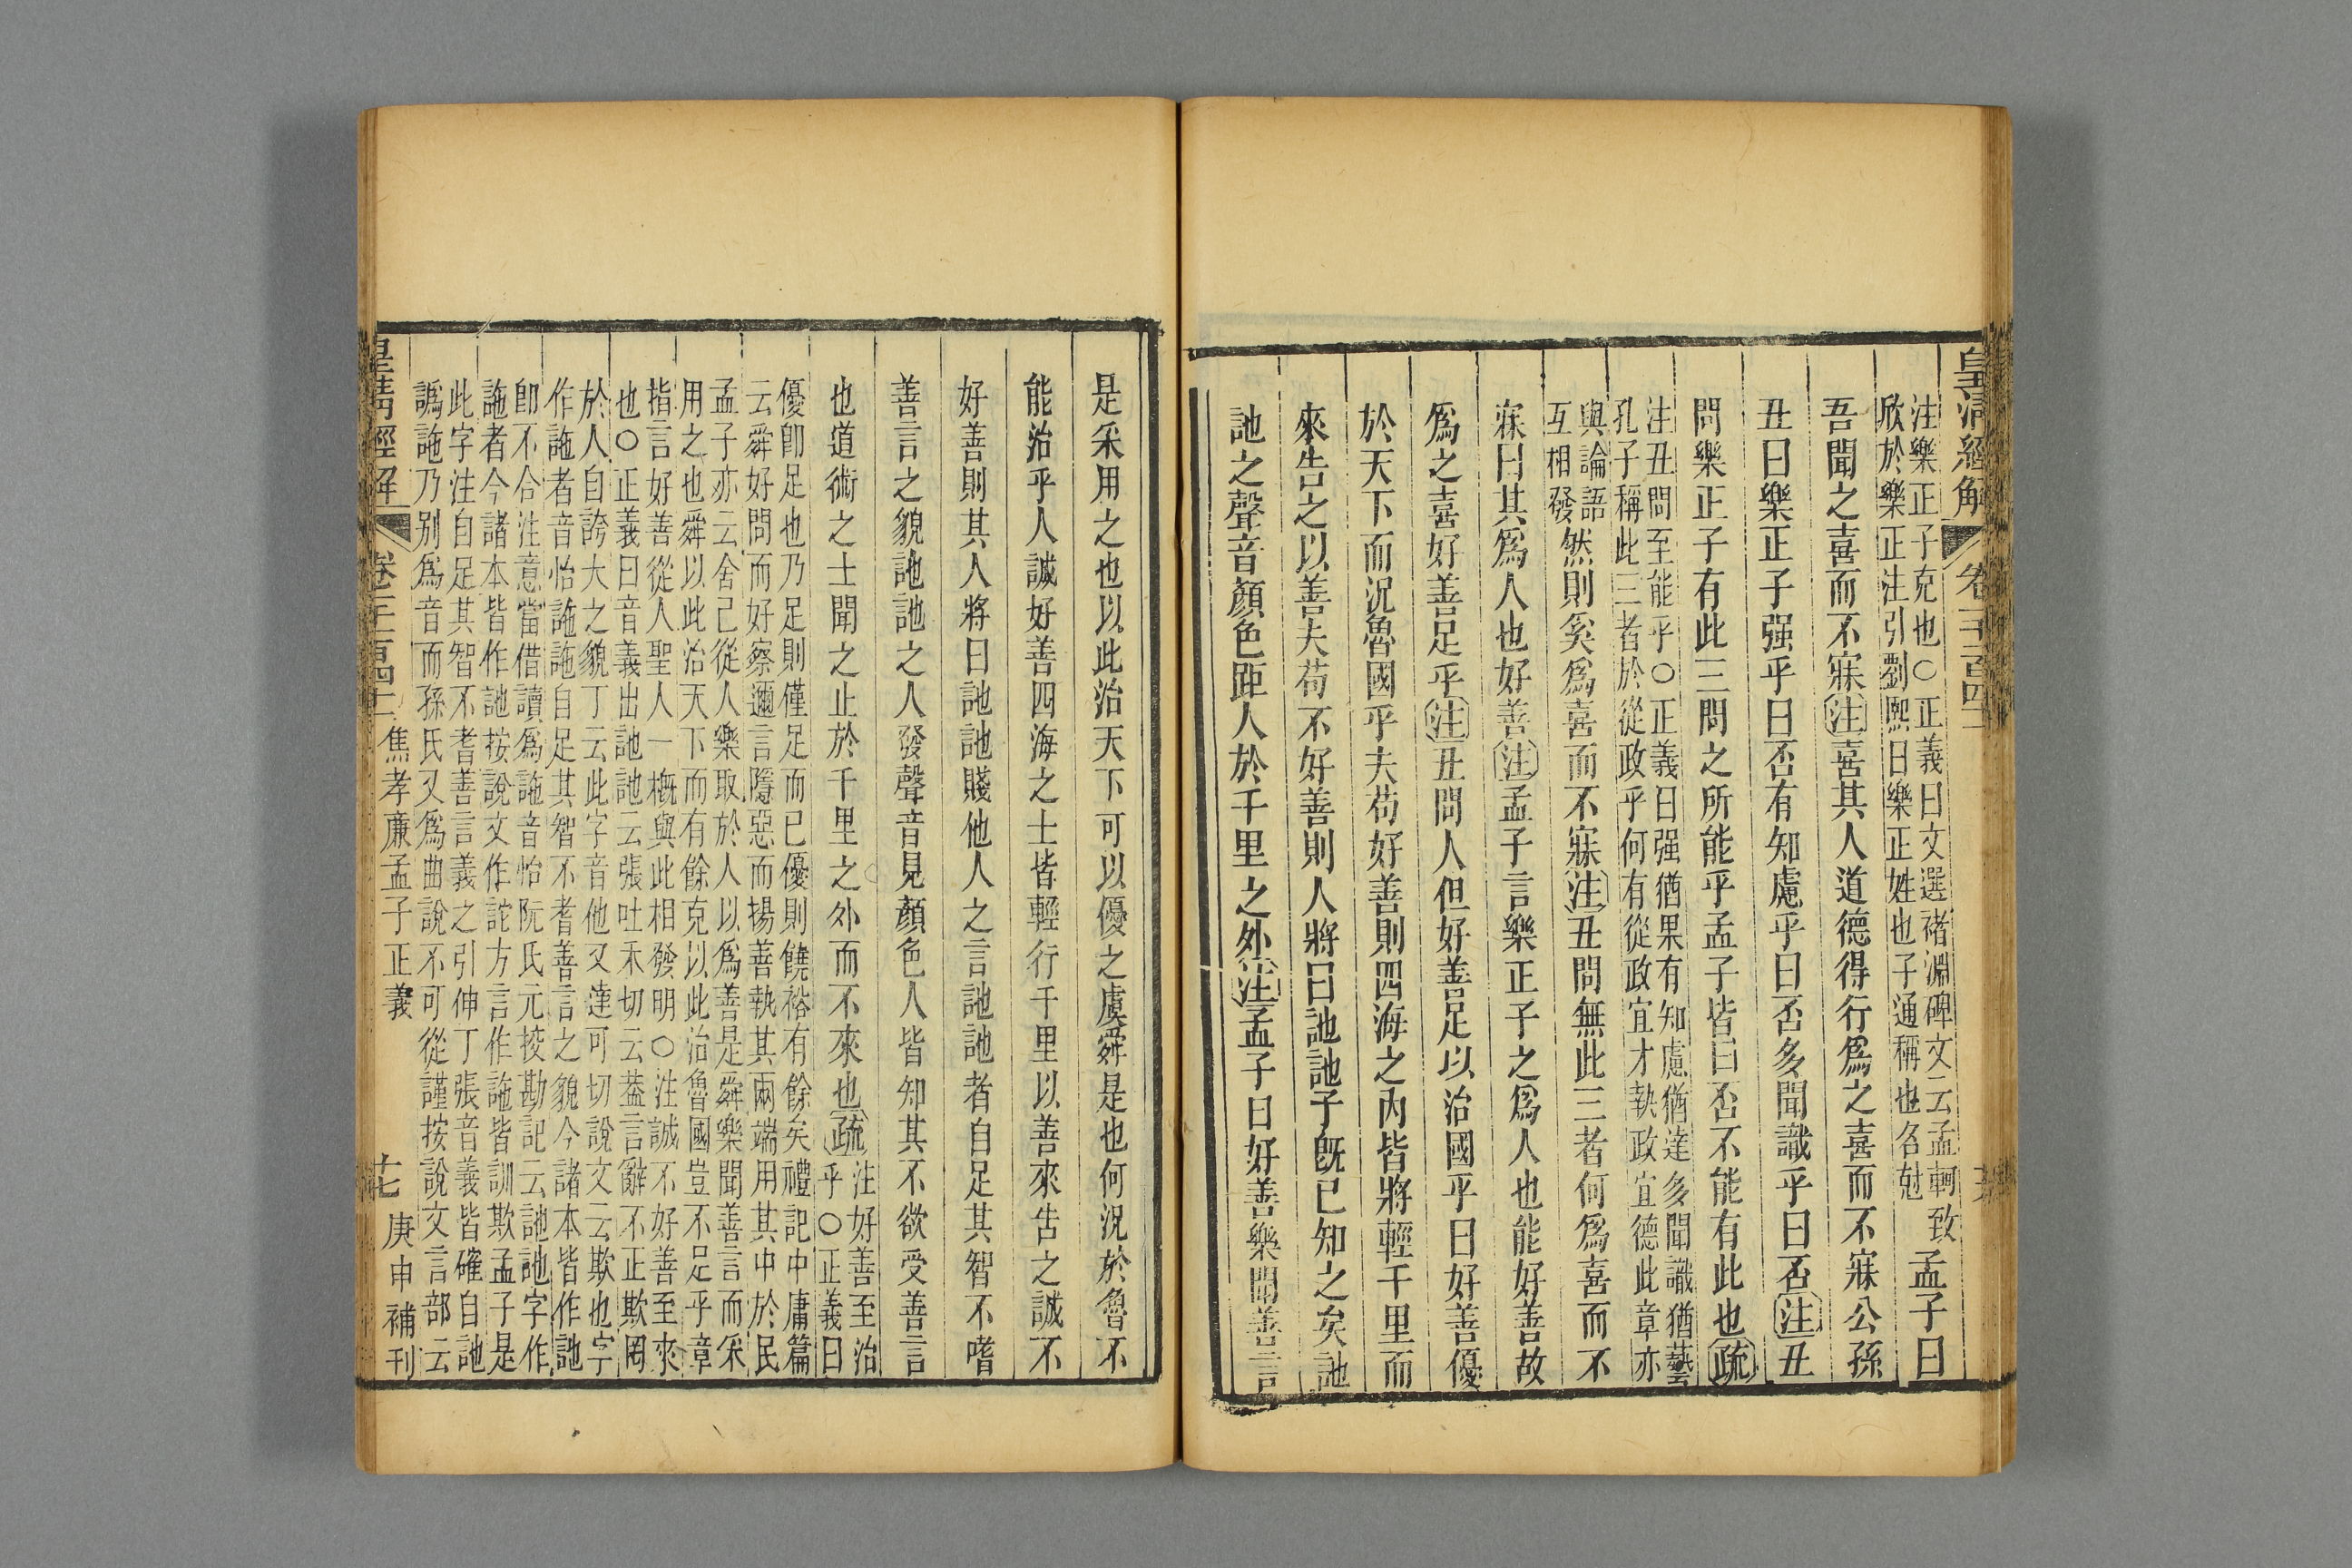 皇淸經解 卷一千一百四十二
注樂正子克也○正義曰文選褚淵碑文云孟軻致
欣於樂正注引劉熙曰樂正姓也子通稱也名尅
孟子曰
吾聞之喜而不寐注喜其人道德得行爲之喜而不寐公孫
丑曰樂正子强乎曰否有知慮乎曰否多聞識乎曰否注丑
問樂正子有此三問之所能乎孟子皆曰否不能有此也疏
注丑問至能乎○正義曰强猶果有知慮猶達多聞識猶藝
孔子稱此三者於從政乎何有從政宜才執政宜德此章亦
與論語
互相發
然則奚爲喜而不寐注丑問無此三者何爲喜而不
寐曰其爲人也好善注孟子言樂正子之爲人也能好善故
爲之喜好善足乎注丑問人但好善足以治國乎曰好善優
於天下而況魯國乎夫苟好善則四海之內皆將輕千里而
來告之以善夫苟不好善則人將曰訑訑予旣已知之矣訑
訑之聲音顏色距人於千里之外注孟子曰好善樂聞善言
是采用之也以此治天下可以優之虞舜是也何況於魯不
能治乎人誠好善四海之士皆輕行千里以善來告之誠不
好善則其人將曰訑訑賤他人之言訑訑者自足其智不嗜
善言之貌訑訑之人發聲音見顏色人皆知其不欲受善言
也道術之士聞之止於千里之外而不來也疏
注好善至治
乎○正義曰
優卽足也乃足則僅足而已優則饒裕有餘矣禮記中庸篇
云舜好問而好察邇言隱惡而揚善執其兩端用其中於民
孟子亦云舍己從人樂取於人以爲善是舜樂聞善言而采
用之也舜以此治天下而有餘克以此治魯國豈不足乎章
指言好善從人聖人一槪與此相發明○注誠不好善至來
也○正義曰音義出訑訑云張吐禾切云蓋言辭不正欺罔
於人自誇大之貌丁云此字音他又達可切說文云欺也字
作訑者音怡訑訑自足其智不耆善言之貌今諸本皆作訑
卽不合注意當借讀爲訑音怡阮氏元挍勘記云訑訑字作
訑者今諸本皆作訑按說文作詑方言作訑皆訓欺孟子是
此字注自足其智不耆善言義之引伸丁張音義皆確自訑
譌訑乃別爲音而孫氏又爲曲說不可從謹按說文言部云
皇淸經解 卷一千一百四十二 焦孝廉孟子正義 十七 庚申補刊